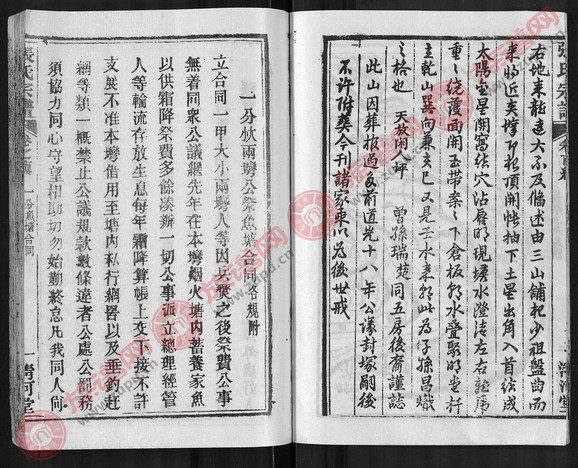 張氏宗譜
卷首
右地来龍遠大不及備述由三山舖起少祖盤曲而
来將近来塆卯長頂開帳抽下土星出角入首結成
太陽金星開窩結穴沾唇明現塘水澄洁左右
重統護面開玉帶案下倉板水疊聚明堂
主乾山巽向兼亥巳又是壬水来此為子孫昌熾
之格也 天放閑人坪 曾孫瑞楚同五房後裔謹誌
此山因葬柩過多前道光十八年公議封塚嗣後
不许附葬今刊諸家乘以為後世戒
清河堂
一分炊兩灣公祭魚塘合同各規附
立合同一甲大小兩灣人等因兵燹之後祭費公事
無着同衆公議緦先年在本塆烟火塘內蓄養家魚
以供霜降祭費多餘湊辦一切公事派立總理經管
人等輪流存放生息每年霜降算帳上交下接不許
支展不准本塆諸人至塘內私行網罟以及垂釣赶
網等類一概禁止公議規款數條違者公處公罰務
須協力同心守望相助切勿始勤終怠凡我同人尙
張氏宗譜
一分魚塘合同
一清河堂